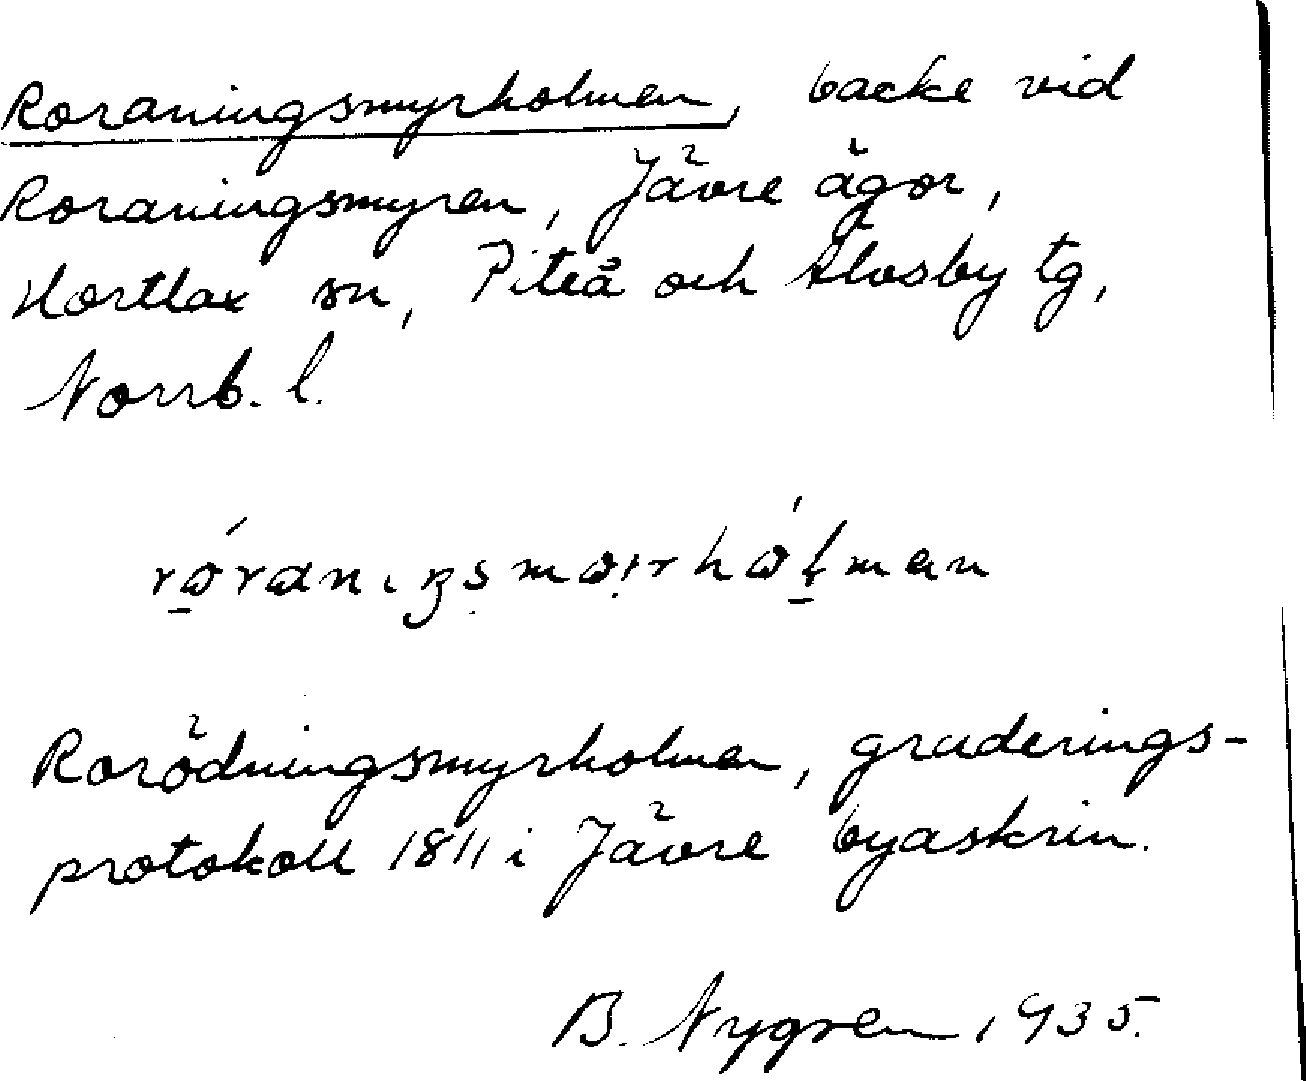 Roraningsmyrholmen, backe vid
Roraningsmyren, Jävre ägor,
Hortlax sn, Piteå och Älvsby tg,
Norrb. l.
Rorödningsmyrholmen, graderings-
protokoll 1811 i Jävre byaskrin.
B. Nygren 1935.